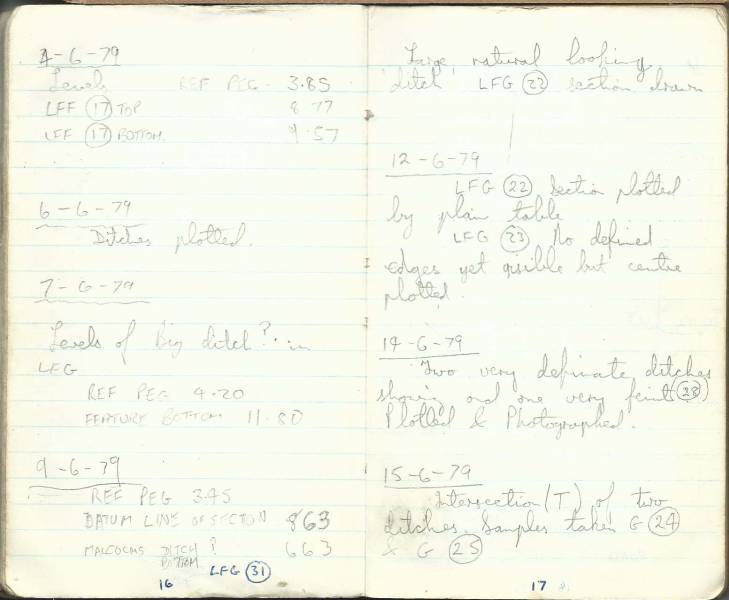 4-6-79
Levels REF PEG - 3.85
LFF (17) TOP 8.77
LFF (17) BOTTOM. 9.57
6-6-79
Ditches plotted.
7-6-79
Levels of Big ditch? in
LFG
REF PEG 4.20
FEATURE BOTTOM 11.80
9-6-79
REF PEG 3.45
DATUM LINE OF SECTION 863
MALCOLMS DITCH ? 663
BOTTOM.
LFG (31)
16
Large natural looking
'ditch' LFG (22) section drawn
12-6-79
LFG (22) Section plotted
by plain table
LFG (23) No defined
edges yet visible but centre
plotted.
14-6-79
Two very definate ditches
showing and one very feint (23)
Plotted & Photographed.
15-6-79
Intersection (T) of two
ditches. Samples taken G (24)
& G (25)
17